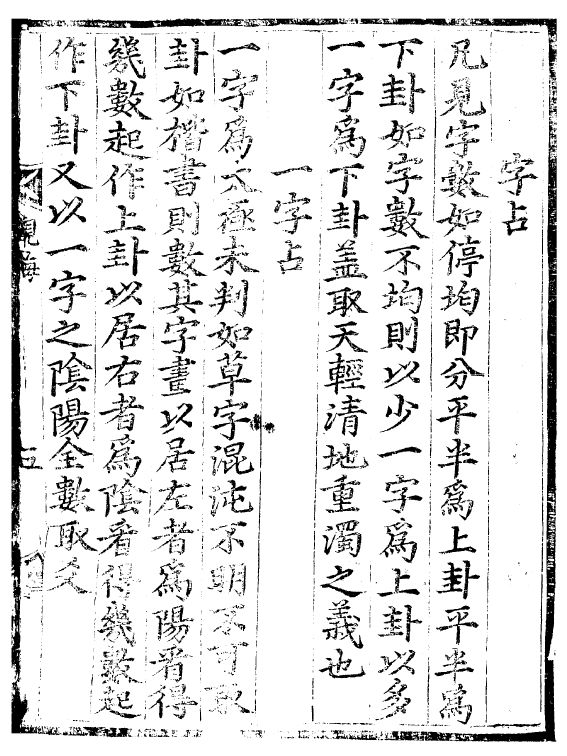 字占
凡見字數如停均即分平半為上卦平半為
下卦如字數不均則以少一字為上卦以多
一字為下卦蓋取天輕清地重濁之義也
一字占
一字為太極未判如草字混沌不明不可取
卦如楷書則數其字畫以居左者為陽看得
幾數起作上卦以居右者為陰看得幾數起
作下卦又以一字之陰陽全數取爻
觀梅 五